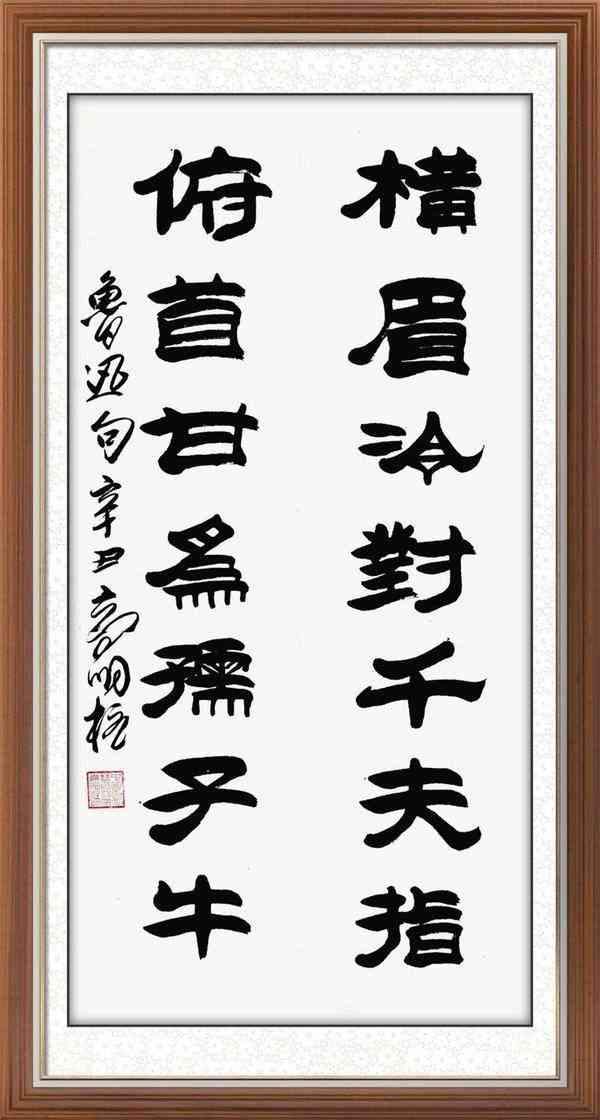 橫眉冷對千夫指
俯首甘為孺子牛
魯迅句辛丑高明柱